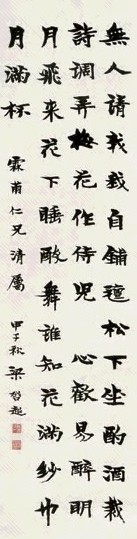 無人請我我自鋪氊松下坐酌酒裁
詩調弄梅花作侍兒心歡易醉明
月飛来花下睡醉舞誰知花滿紗巾
月滿杯
霖甫仁兄清屬
甲子秋梁啟超